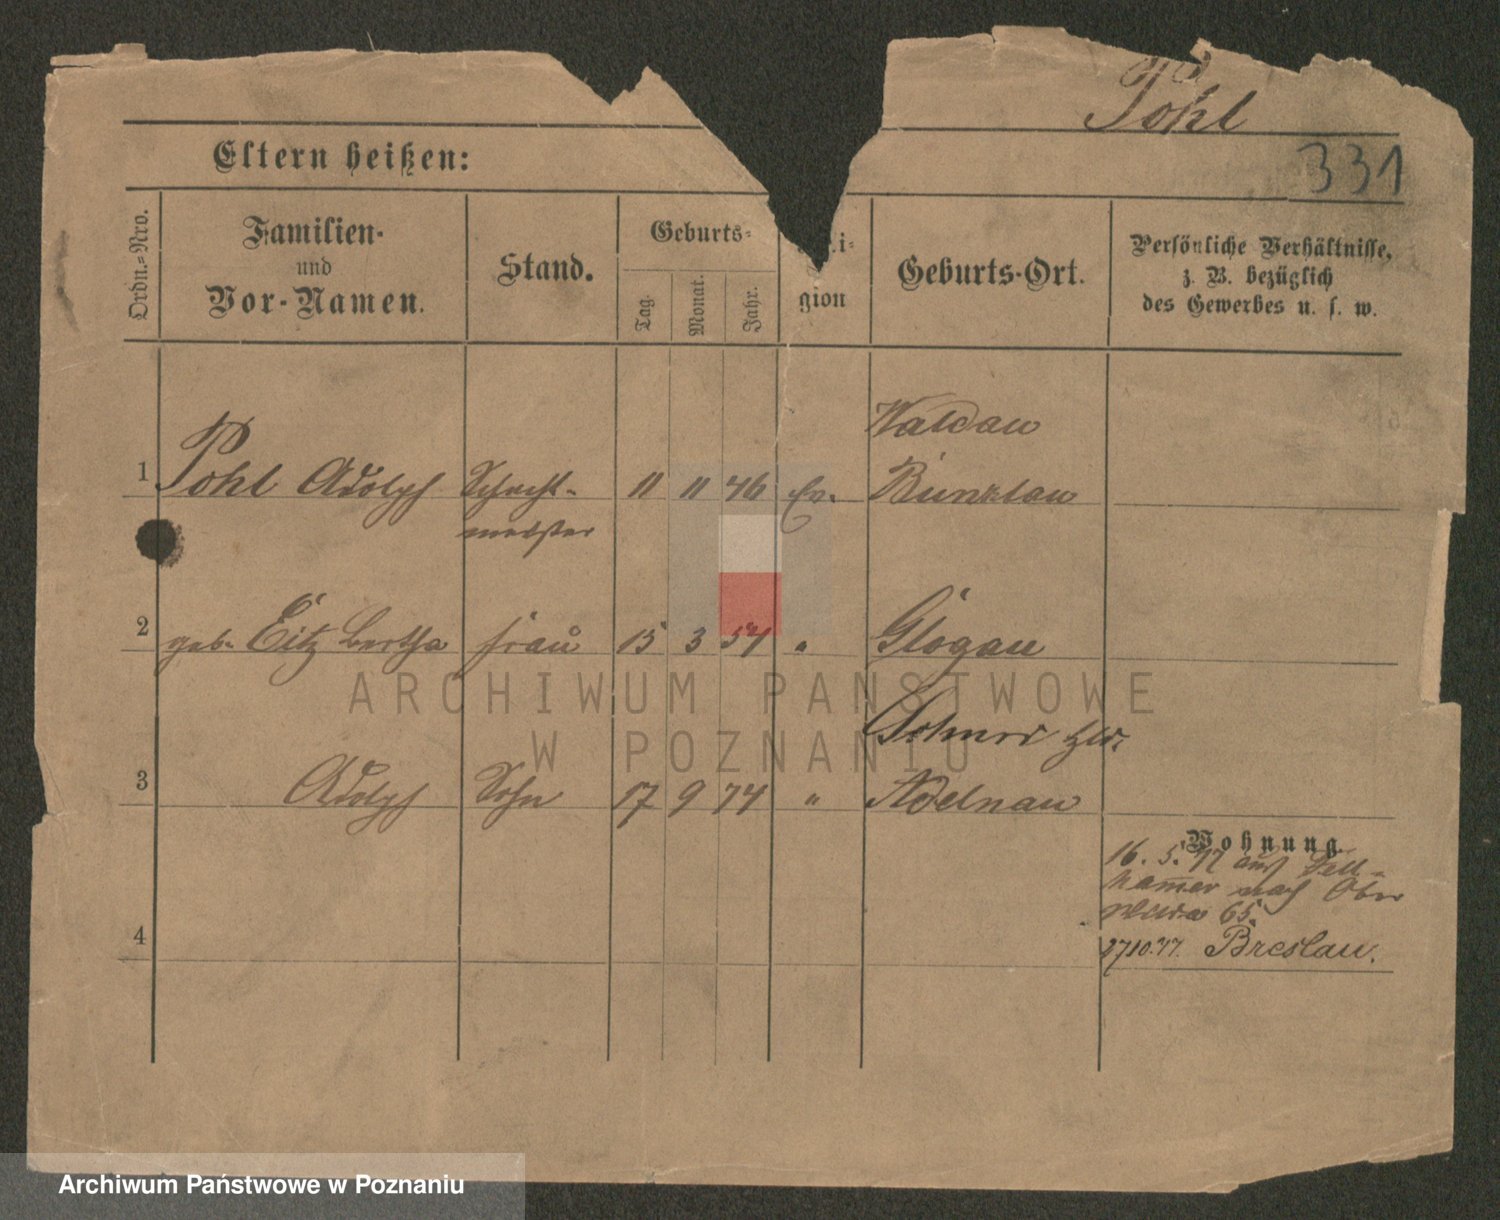 Pohl
331
Eltern heißen:
Ordn.-Nro.
Familien-
und
Vor-Namen.
Stand.
Geburts-
Tag.
Monat.
Jahr.
gion
Geburts-Ort.
Persönliche Verhältnisse,
z. B. bezüglich
des Gewerbes u. s. w.
Waldau
1 Pohl Adolph Schacht- 11 11 46 Ev. Bunzlau
meister
2 geb. Eitz Bertha Frau 15 3 54 " Glogau
ARCHIWUM PAŃSTWOWE
W POZNANIU
3 Adolph Sohn 17 9 74 " Adelnau
Wohnung.
16. 5. 77 aus Fell-
hammer nach Ober
65.
4 27 10. 77. Breslau.
Archiwum Państwowe w Poznaniu